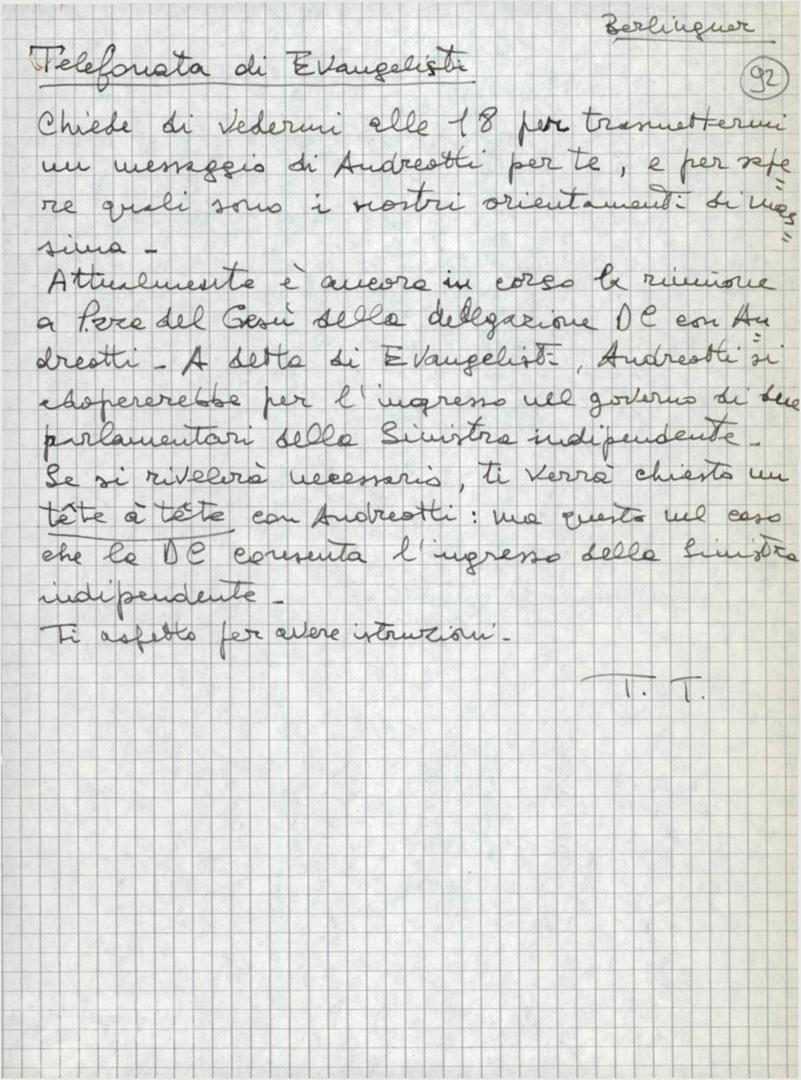 Berlinguer
Telefonata di Evangelisti
92
Chiede di vedermi alle 18 per trasmettermi
un messaggio di Andreotti per te, e per sape=
re quali sono i nostri orientamenti di mas=
sima -
Attualmente è ancora in corso la riunione
a P.zza del Gesù della delegazione DC con An=
dreotti - A detta di Evangelisti, Andreotti si
adopererebbe per l'ingresso nel governo di due
parlamentari della Sinistra indipendente -
Se si rivelerà necessario, ti verrà chiesto un
tête à tête con Andreotti: ma questo nel caso
che la DC consenta l'ingresso della Sinistra
indipendente -
Ti aspetto per avere istruzioni -
T. T.